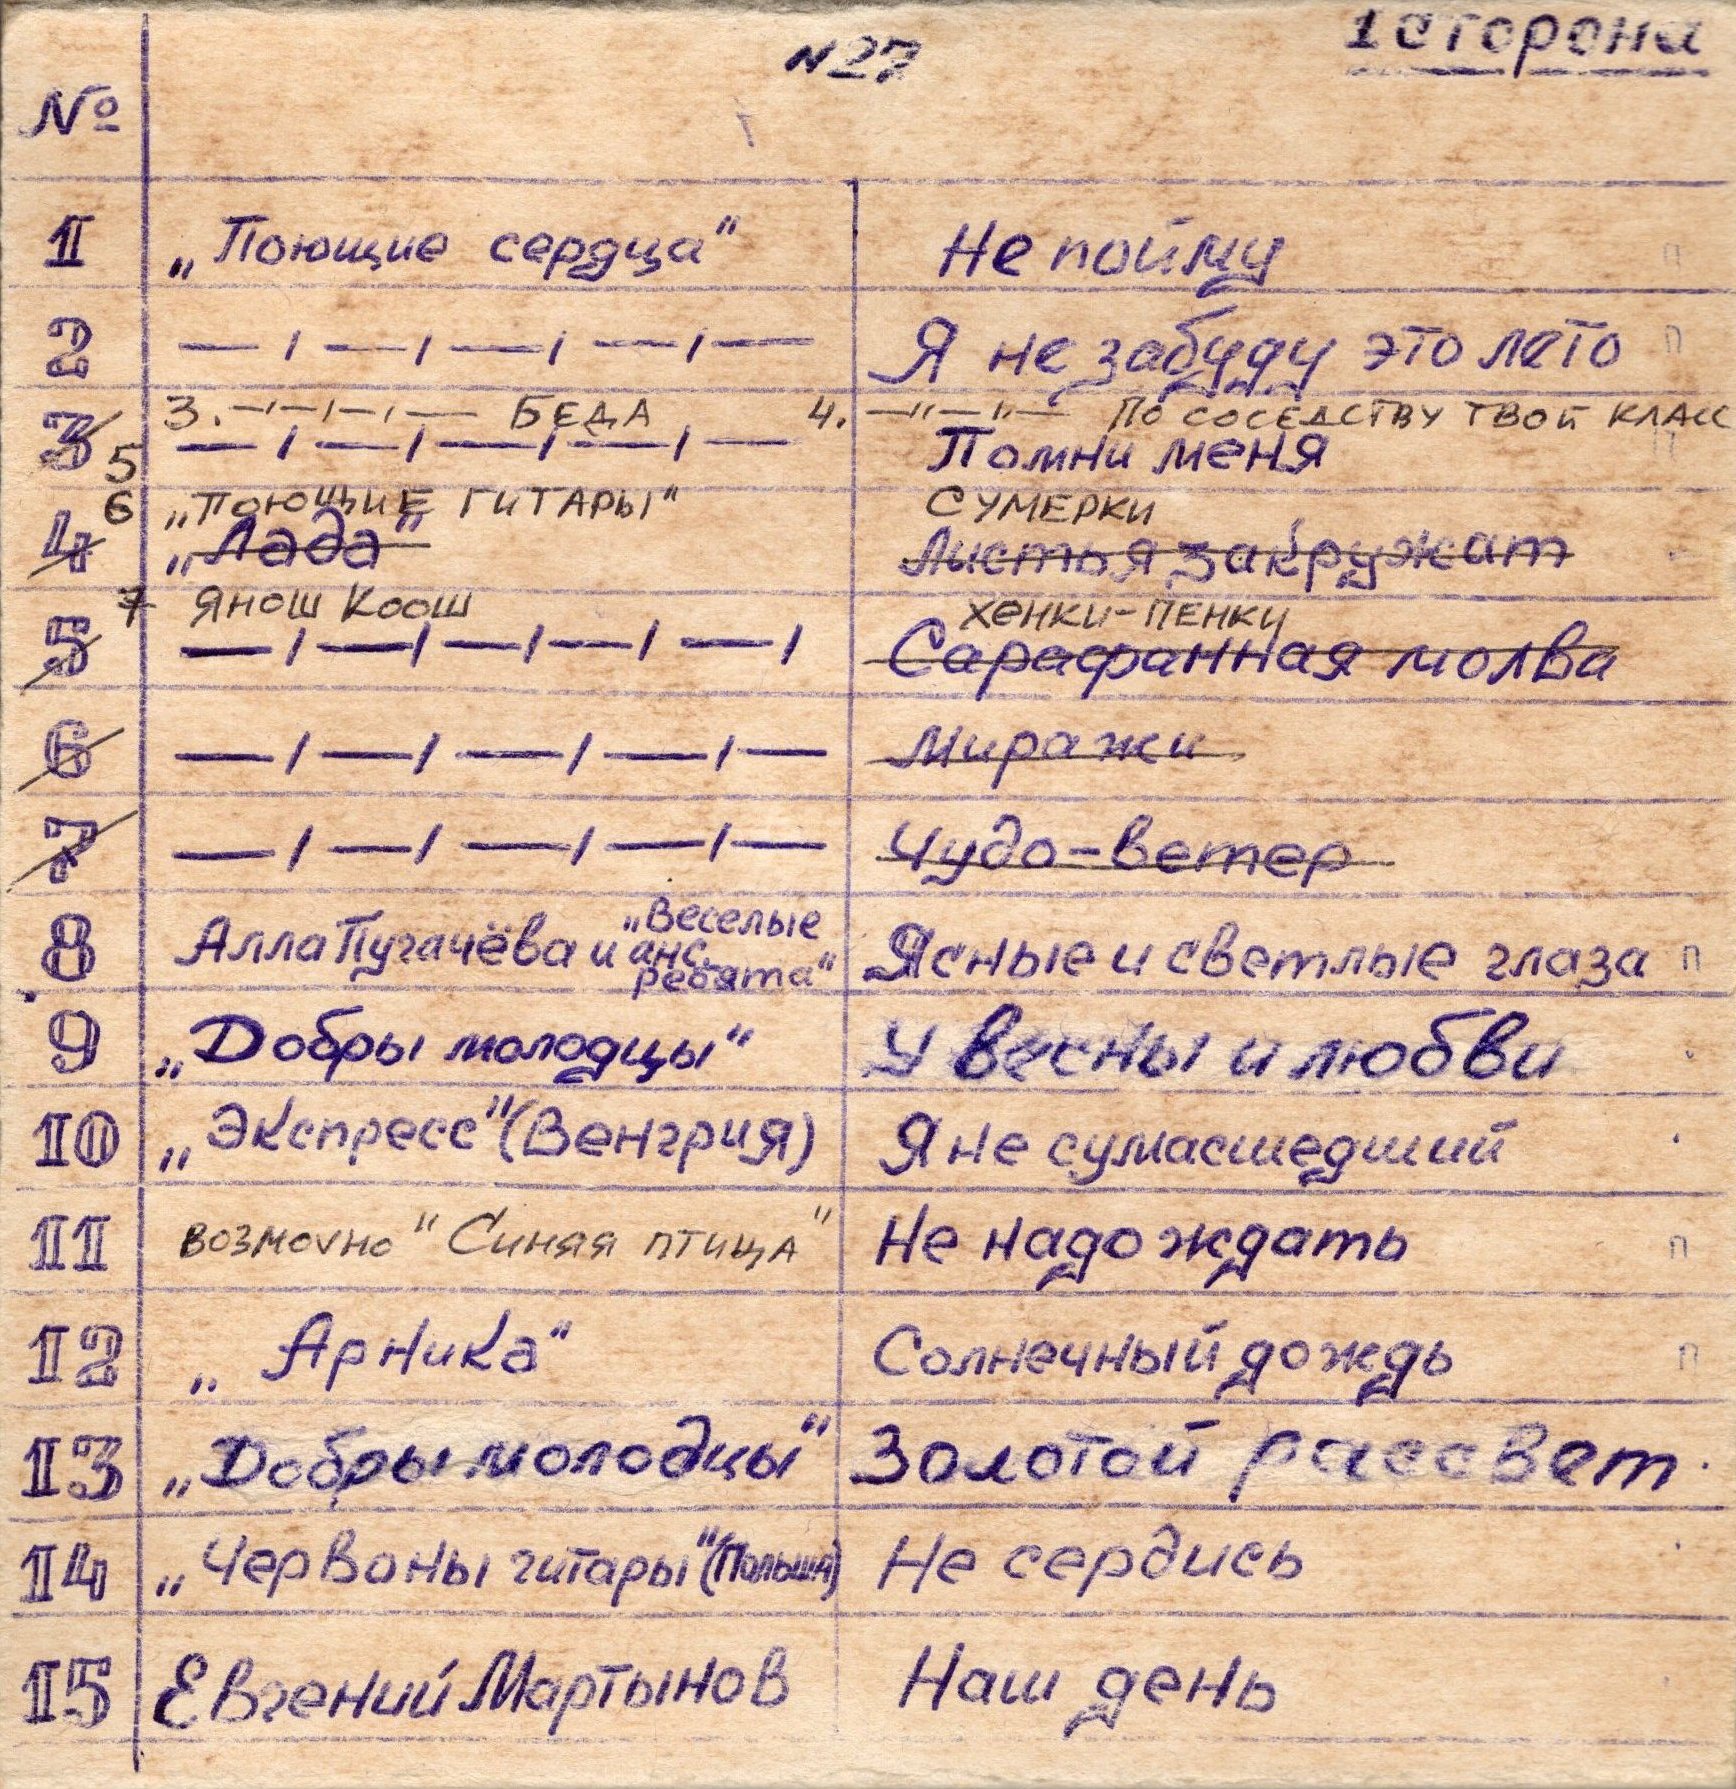 1 сторона
N27
№
1 „Поющие сердца" Не пойму п
2 — ׀ — ׀ — ׀ — ׀ — Я не забуду это лето п
3. -ı-ı-ı- — БЕДА 4. —"—"— ПО СОСЕДСТВУ ТВОЙ КЛАСС
3 5 — ׀ — ׀ — ׀ — ׀ — Помни меня п
6 „ПОЮЩИЕ ГИТАРЫ" СУМЕРКИ
4 „Лада" Листья закружат
7 ЯНОШ КООШ ХЕНКИ-ПЕНКИ
5 — ׀ — ׀ — ׀ — ׀ — ׀ Сарафанная молва
6 — ׀ — ׀ — ׀ — ׀ — Миражи
7 — ׀ — ׀ — ׀ — ׀ — Чудо-ветер
8 Алла Пугачёва и анс. „Веселые ребята" Ясные и светлые глаза п
9 „Добры молодцы" У весны и любви
10 „Экспресс" (Венгрия) Я не сумасшедший
11 ВОЗМОЧНО "СИНЯЯ ПТИЦА" Не надо ждать п
12 „Арника" Солнечный дождь п
13 „Добры молодцы" Золотой рассвет
14 „Червоны гитары" (Польша) Не сердись
15 Евгений Мартынов Наш день